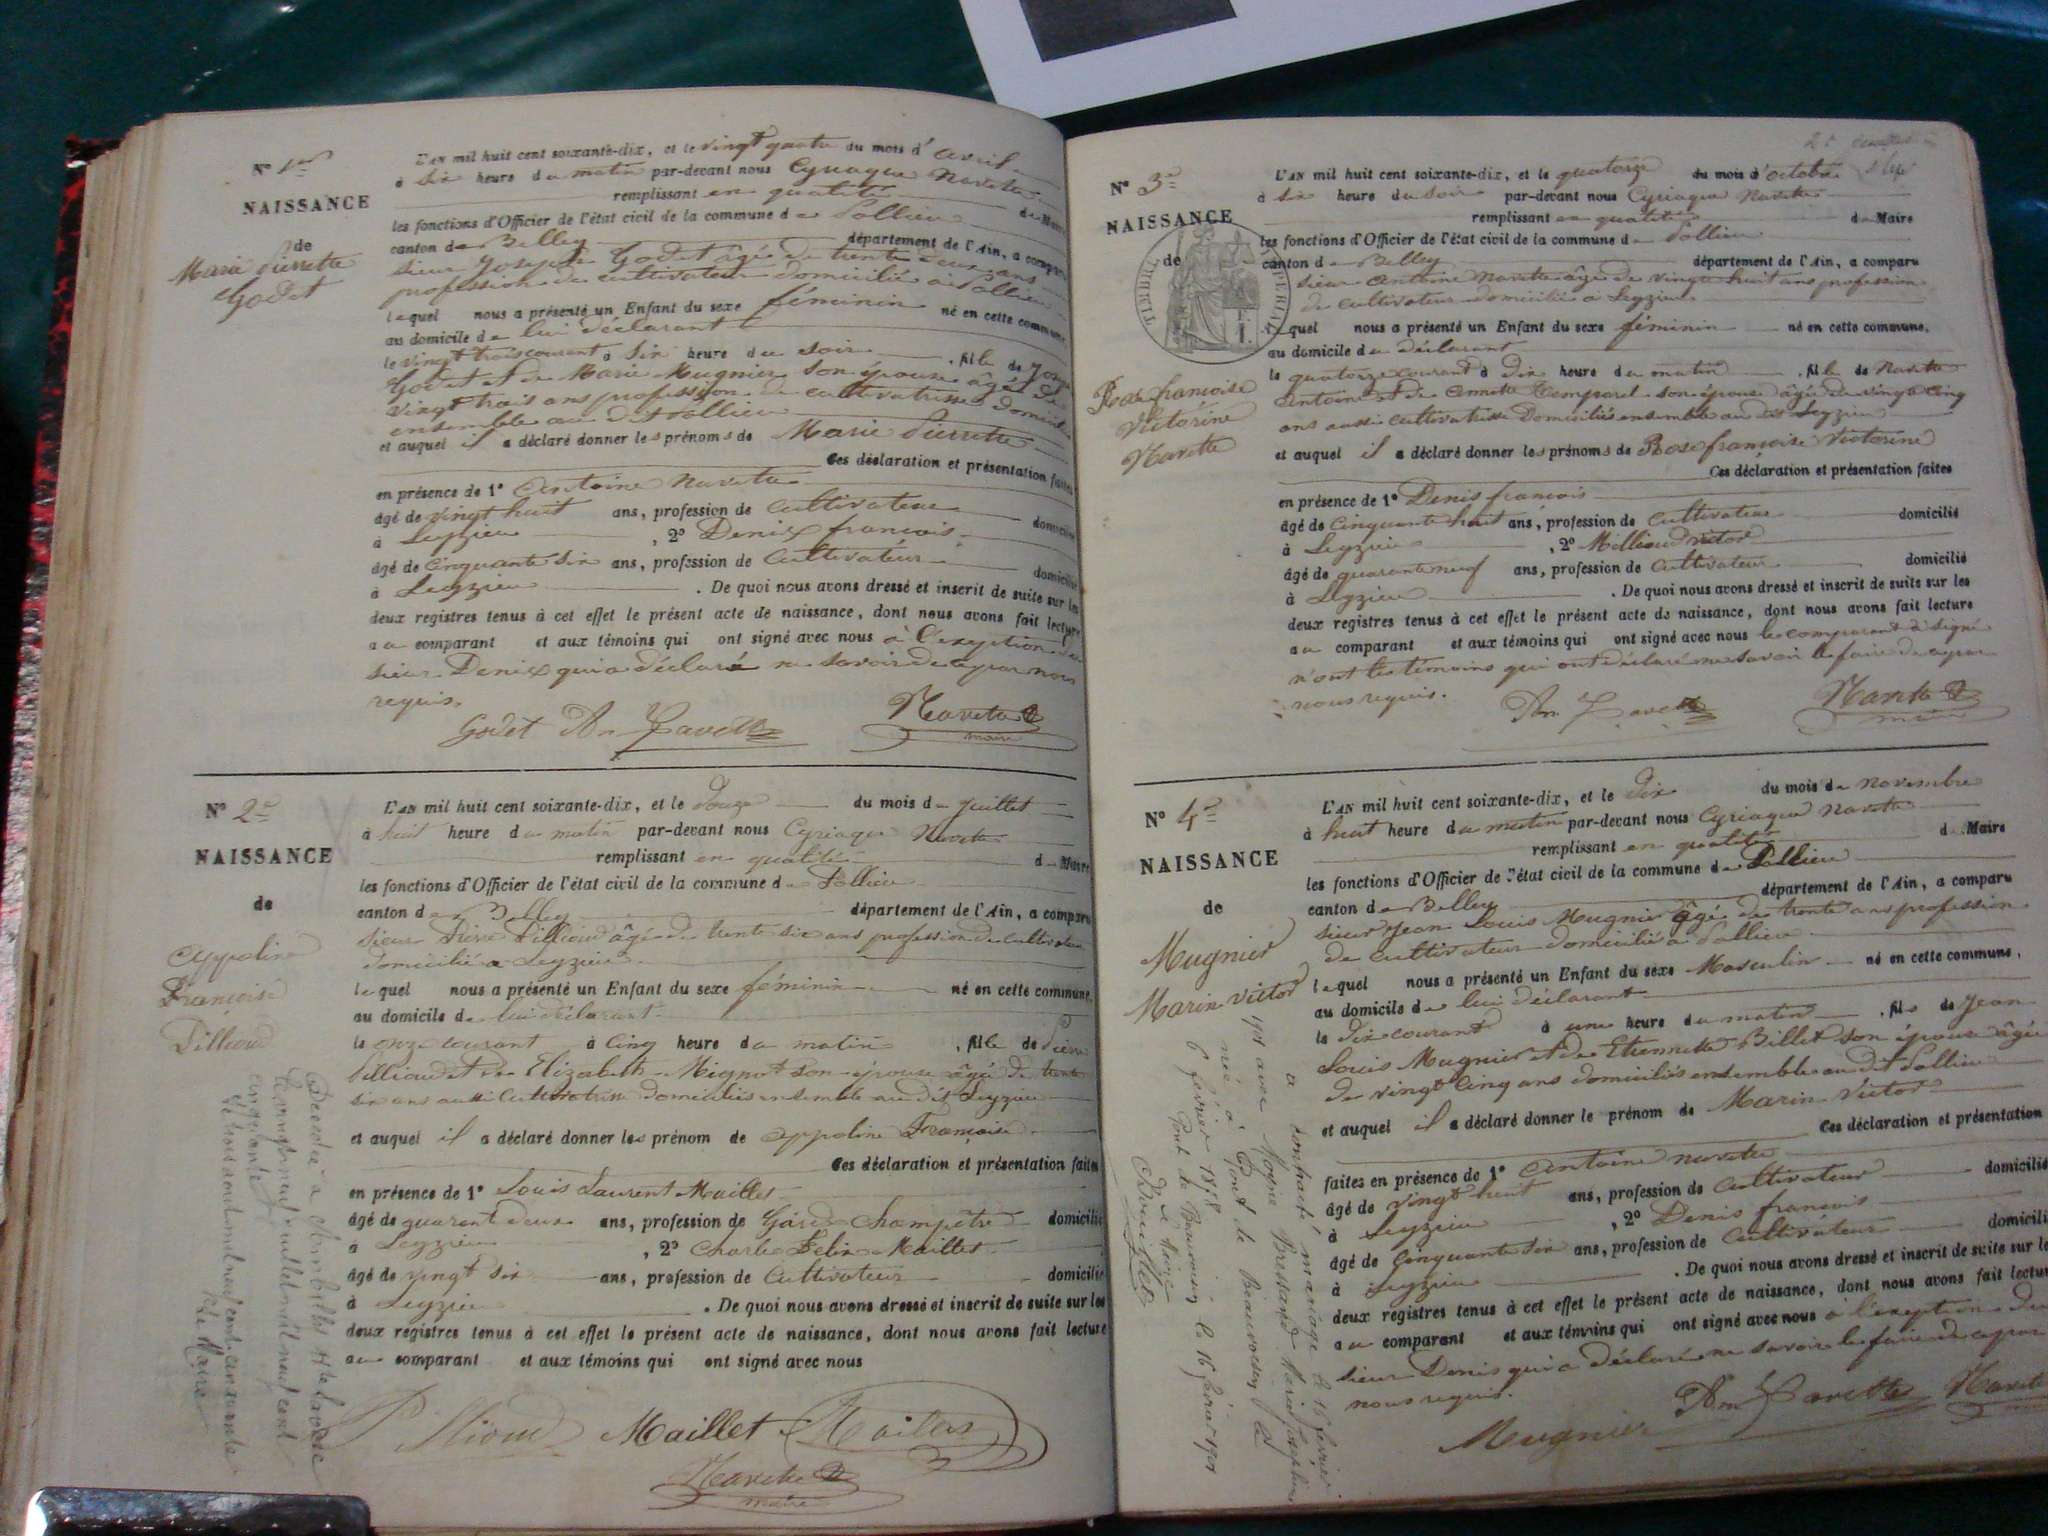 N° 1er
NAISSANCE
de
Marie Pierrette
Godet
L'AN mil huit cent soixante-dix, et le vingt quatre du mois d'avril
à six heure du matin par-devant nous Cyriaque Navette
remplissant en qualité de Maire
les fonctions d'Officier de l'état civil de la commune de Pollieu
canton de Belley département de l'Ain, a comparu
sieur Joseph Godet âgé de trente deux ans
profession de cultivateur domicilié à Pollieu
lequel nous a présenté un Enfant du sexe féminin né en cette commune
au domicile de lui déclarant
le vingt trois courant à six heure du soir, fille de
Godet et de Marie Mugnier son épouse âgée de
vingt trois ans profession de cultivatrice
ensemble au dit Pollieu
et auquel il a déclaré donner les prénoms de Marie Pierrette
Ces déclaration et présentation faites
en présence de 1° Antoine Navette
âgé de vingt huit ans, profession de cultivateur domicilié
à Leyzieu, 2° Denix françois
âgé de Cinquante six ans, profession de Cultivateur domicilié
à Leyzieu. De quoi nous avons dressé et inscrit de suite sur les
deux registres tenus à cet effet le présent acte de naissance, dont nous avons fait lecture
au comparant et aux témoins qui ont signé avec nous à l'exeption
sieur Denix qui a déclaré ne savoir de ce par nous
requis.
Godet An Navette Navette
maire
N° 2e
NAISSANCE
de
Appoline
Françoise
Pillioud
L'AN mil huit cent soixante-dix, et le Douze du mois de juillet
à huit heure du matin par-devant nous Cyriaque Navette
remplissant en qualité de Maire
les fonctions d'Officier de l'état civil de la commune de Pollieu
canton de Belley département de l'Ain, a comparu
sieur Pierre Pillioud âgé de trente six ans profession de cultivateur
domicilié à Leyzieu
lequel nous a présenté un Enfant du sexe féminin né en cette commune
au domicile de lui déclarant
le onze courant à Cinq heure du matin, fille de Pierre
Pillioud et de Elizabeth Mignot son épouse âgée de trente
six ans aussi cultivatrice domiciliés ensemble au dit Leyzieu
et auquel il a déclaré donner les prénom de Appoline Françoise
Ces déclaration et présentation faites
en présence de 1° Louis Laurent Maillet
âgé de quarent deux ans, profession de Garde Champêtre domicilié
à Leyzieu, 2° Charles Felix Maillet
âgé de vingt six ans, profession de Cultivateur domicilié
à Leyzieu. De quoi nous avons dressé et inscrit de suite sur les
deux registres tenus à cet effet le présent acte de naissance, dont nous avons fait lecture
au comparant et aux témoins qui ont signé avec nous
Pillioud Maillet Mailles
Navette
maire
Décédée à
juillet mil neuf cent
cinquante
le trois aout mil neuf cent cinquante
Le Maire
N° 3e
NAISSANCE
de
TIMBRE IMPERIAL
Rose françoise
Victorine
Navette
L'AN mil huit cent soixante-dix, et le quatorze du mois d'octobre
à six heure du soir par-devant nous Cyriaque Navette
remplissant en qualité de Maire
les fonctions d'Officier de l'état civil de la commune de Pollieu
canton de Belley département de l'Ain, a comparu
sieur Antoine Navette âgé de vingt huit ans profession
de cultivateur domicilié à Leyzieu
lequel nous a présenté un Enfant du sexe féminin né en cette commune,
au domicile du déclarant
le quatorze courant à dix heure du matin, fille de Navette
Antoine et de son épouse âgée de vingt cinq
ans aussi cultivatrice Domiciliés ensemble au dit Leyzieu
et auquel il a déclaré donner les prénoms de Rose françoise Victorine
Ces déclaration et présentation faites
en présence de 1° Denis françois
âgé de Cinquante huit ans, profession de Cultivateur domicilié
à Leyzieu, 2° Millioud victor
âgé de quarante neuf ans, profession de Cultivateur domicilié
à Leyzieu. De quoi nous avons dressé et inscrit de suite sur les
deux registres tenus à cet effet le présent acte de naissance, dont nous avons fait lecture
au comparant et aux témoins qui ont signé avec nous le comparant à signé
n'ont les témoins qui ont déclaré ne savoir le faire de ce par
nous requis.
An Navette Navette
maire
N° 4e
NAISSANCE
de
Mugnier
Marin victor
L'AN mil huit cent soixante-dix, et le Dix du mois de novembre
à huit heure du matin par-devant nous Cyriaque Navette
remplissant en qualité de Maire
les fonctions d'Officier de l'état civil de la commune de Pollieu
canton de Belley département de l'Ain, a comparu
sieur Jean Louis Mugnier âgé de trente ans profession
de cultivateur domicilié à Pollieu
lequel nous a présenté un Enfant du sexe Masculin né en cette commune,
au domicile de lui déclarant
le dix courant à une heure du matin, fils de Jean
Louis Mugnier et de Etiennette Billet son épouse âgée
de vingt cinq ans domiciliés ensemble au dit Pollieu
et auquel il a déclaré donner le prénom de Marin Victor
Ces déclaration et présentation
faites en présence de 1° Antoine navette
âgé de vingt huit ans, profession de Cultivateur domicilié
à Leyzieu, 2° Denis françois
âgé de Cinquante six ans, profession de Cultivateur domicilié
à Leyzieu. De quoi nous avons dressé et inscrit de suite sur les
deux registres tenus à cet effet le présent acte de naissance, dont nous avons fait lecture
au comparant et aux témoins qui ont signé avec nous à l'exeption du
sieur Denis qui a déclaré ne savoir le faire de ce par
nous requis.
Mugnier An Navette Navette
a contracté mariage le 16 février
1901 avec Mogne Bressand Marie Joséphine
née à Pont de Beauvoisin le
6 février 1878
Pont de Beauvoisin le 16 février 1901
Le Maire